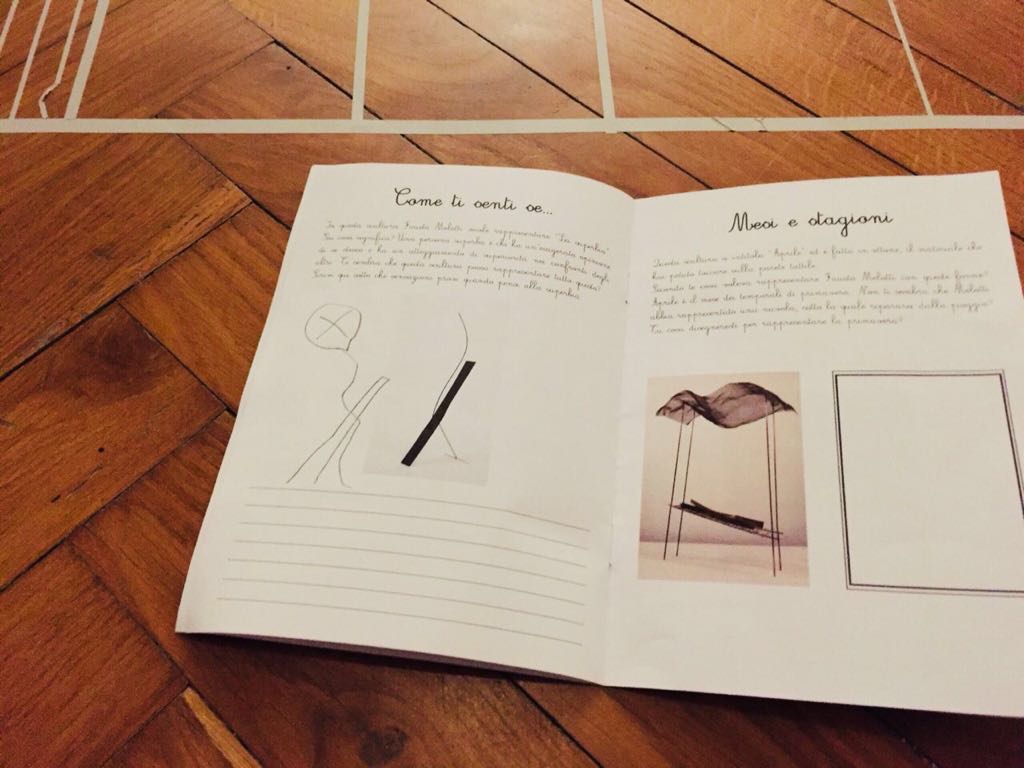 Come ti senti se...
In questa scultura Fausto Melotti vuole rappresentare "La superbia"
Tu cosa significa? Una persona superba è chi ha un'esagerata opinione
di se stesso e ha un atteggiamento di superiorità nei confronti degli
altri. Ti sembra che questa scultura possa rappresentare tutto questo?
Scrivi qui sotto che immagini provi quando pensi alla superbia
Mesi e stagioni
Questa scultura si intitola "Aprile" ed è fatta in ottone, il materiale che
hai potuto toccare sulla parete tattile.
Secondo te cosa voleva rappresentare Fausto Melotti con queste forme?
Aprile è il mese dei temporali di primavera. Non ti sembra che Melotti
abbia rappresentato una nuvola, sotto la quale ripararsi dalla pioggia?
Tu cosa disegneresti per rappresentare la primavera?